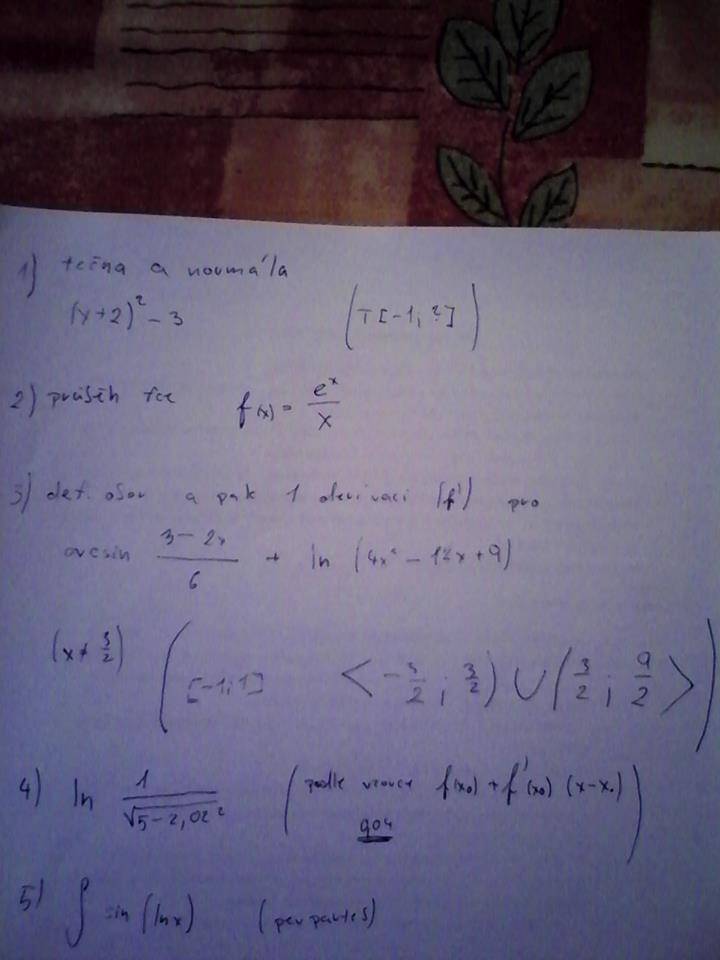 1) tečna a normála
(x+2)² - 3 (T[-1; ?])
2) průběh fce f(x) = e^x / x
3) def. obor a pak 1 derivaci (f') pro
arcsin (3-2x)/6 + ln (4x² - 12x + 9)
(x ≠ 3/2) ([-1;1] <-3/2 ; 3/2) ∪ (3/2 ; 9/2>)
4) ln 1/√(5-2,02²) (podle vzorce f(x₀) + f'(x₀) (x-x₀)
0,04)
5) ∫ sin (ln x) (per partes)